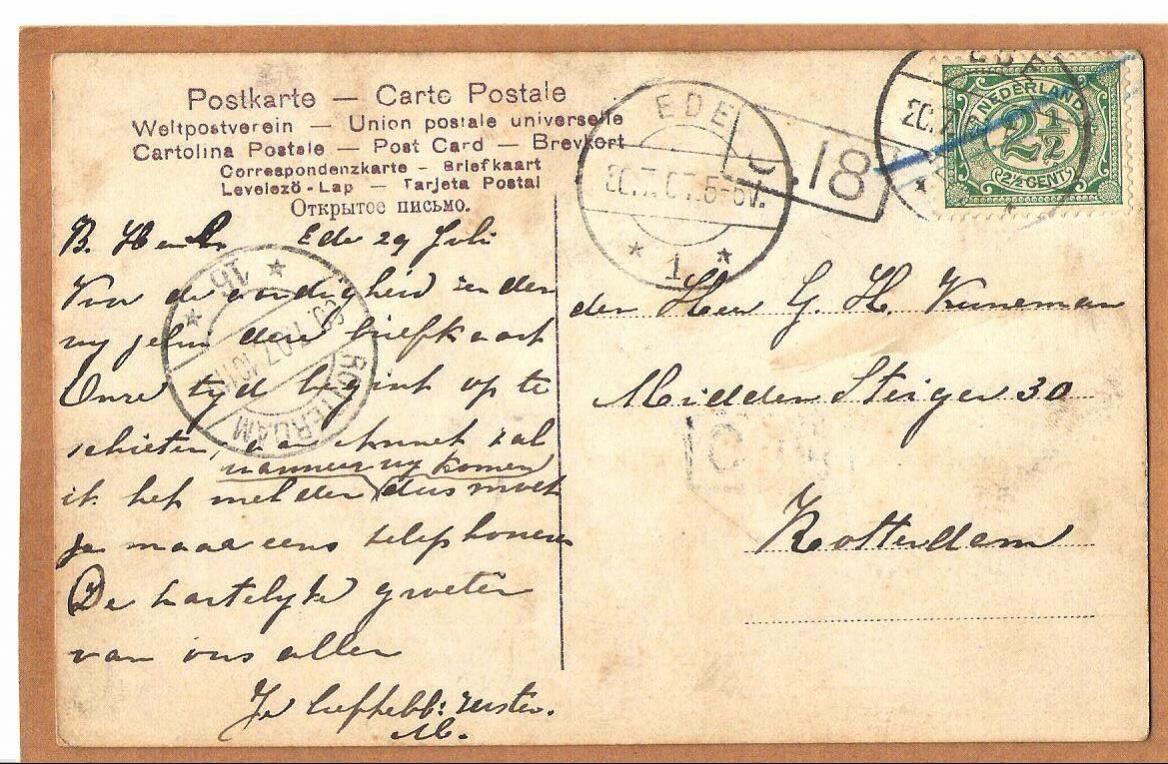 Postkarte — Carte Postale
Weltpostverein — Union postale universelle
Cartolina Postale — Post Card — Brevkort
Correspondenzkarte - Briefkaart
Levelező-Lap — Tarjeta Postal
Открытое письмо.
EDE
5-6V.
1
18
NEDERLAND
2½
2½ CENT
16
ROTTERDAM
B. Ede 29 Juli
Voor de aardigheid zenden
wy jelui deze briefkaart
Onze tyd begint op te
schieten, aan zal
ik het melden wanneer wy komen dus moet
je maar eens telephoneren
De hartelyke groeten
van ons allen
Je liefhebb: zuster.
M.
den Heer G. H. Kuneman
Midden Steiger 30
Rotterdam